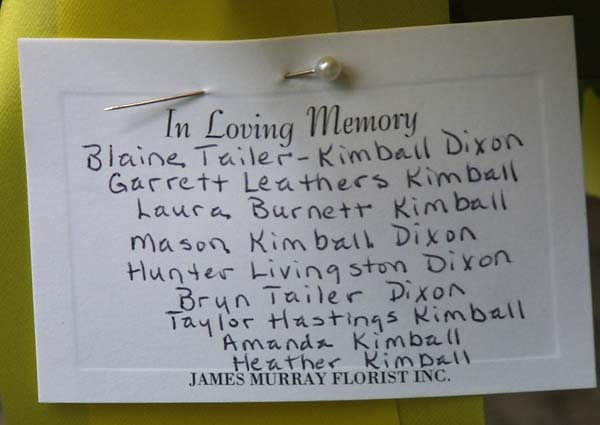 In Loving Memory
Blaine Tailer-Kimball Dixon
Garrett Leathers Kimball
Laura Burnett Kimball
Mason Kimball Dixon
Hunter Livingston Dixon
Bryn Tailer Dixon
Taylor Hastings Kimball
Amanda Kimball
Heather Kimball
JAMES MURRAY FLORIST INC.